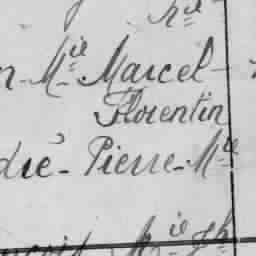 n-Mie Marcel-
Florentin
dré-Pierre-Mie